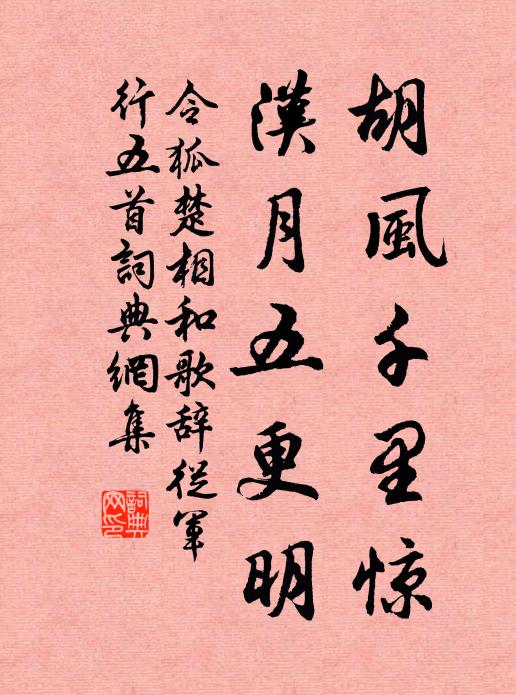 胡風千里惊
漢月五更明
令狐楚相和歌辞從軍
行五首詞典網集
詞典网印